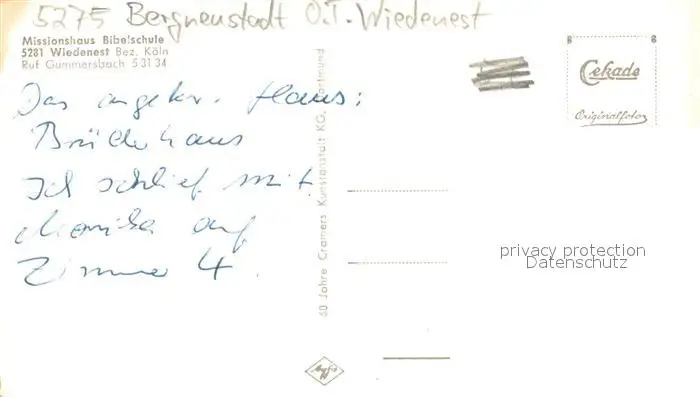 5275 Bergneustadt O.T. Wiedenest
Missionshaus Bibelschule
5281 Wiedenest Bez. Köln
Ruf Gummersbach 5 31 34
Das angekr. Haus:
Brüderhaus
Ich schlief mit
Monika auf
Zimmer 4.
60 Jahre Cramers Kunstanstalt KG, Dortmund
Cekade
Originalfoto
privacy protection
Datenschutz
Agfa